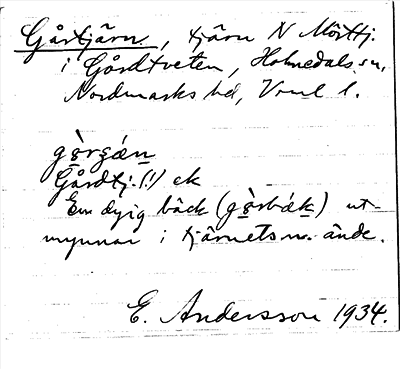 Gårtjärn, tjärn N Mörttj.
i Gårdtveten, Holmedals sn,
Nordmarks hd, Vrml l.
gǫ̀rʂǽn
Gårdtj. (!) ek
En dyig bäck (gǫ̀rbǽk) ut-
mynnar i tjärnets n. ände.
E. Andersson 1934.